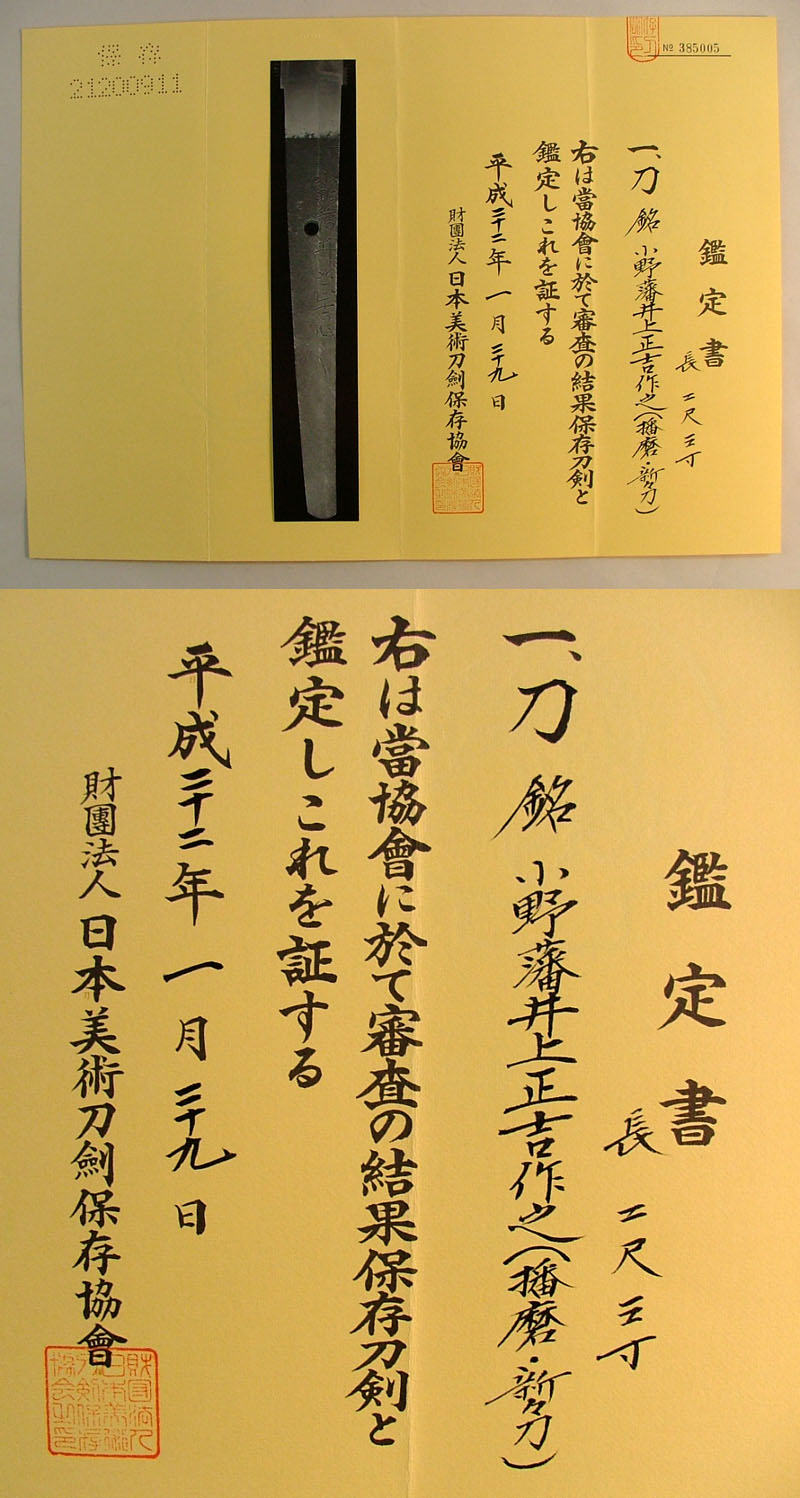 保存
21200911
№ 385005
鑑定書
長 二尺三寸
一、刀 銘 小野藩井上正吉作之(播磨・新々刀)
右は當協會に於て審査の結果保存刀剣と
鑑定しこれを証する
平成二十二年一月二十九日
財團法人日本美術刀劍保存協會
鑑定書
長 二尺三寸
一、刀 銘 小野藩井上正吉作之(播磨・新々刀)
右は當協會に於て審査の結果保存刀剣と
鑑定しこれを証する
平成二十二年一月二十九日
財團法人日本美術刀劍保存協會